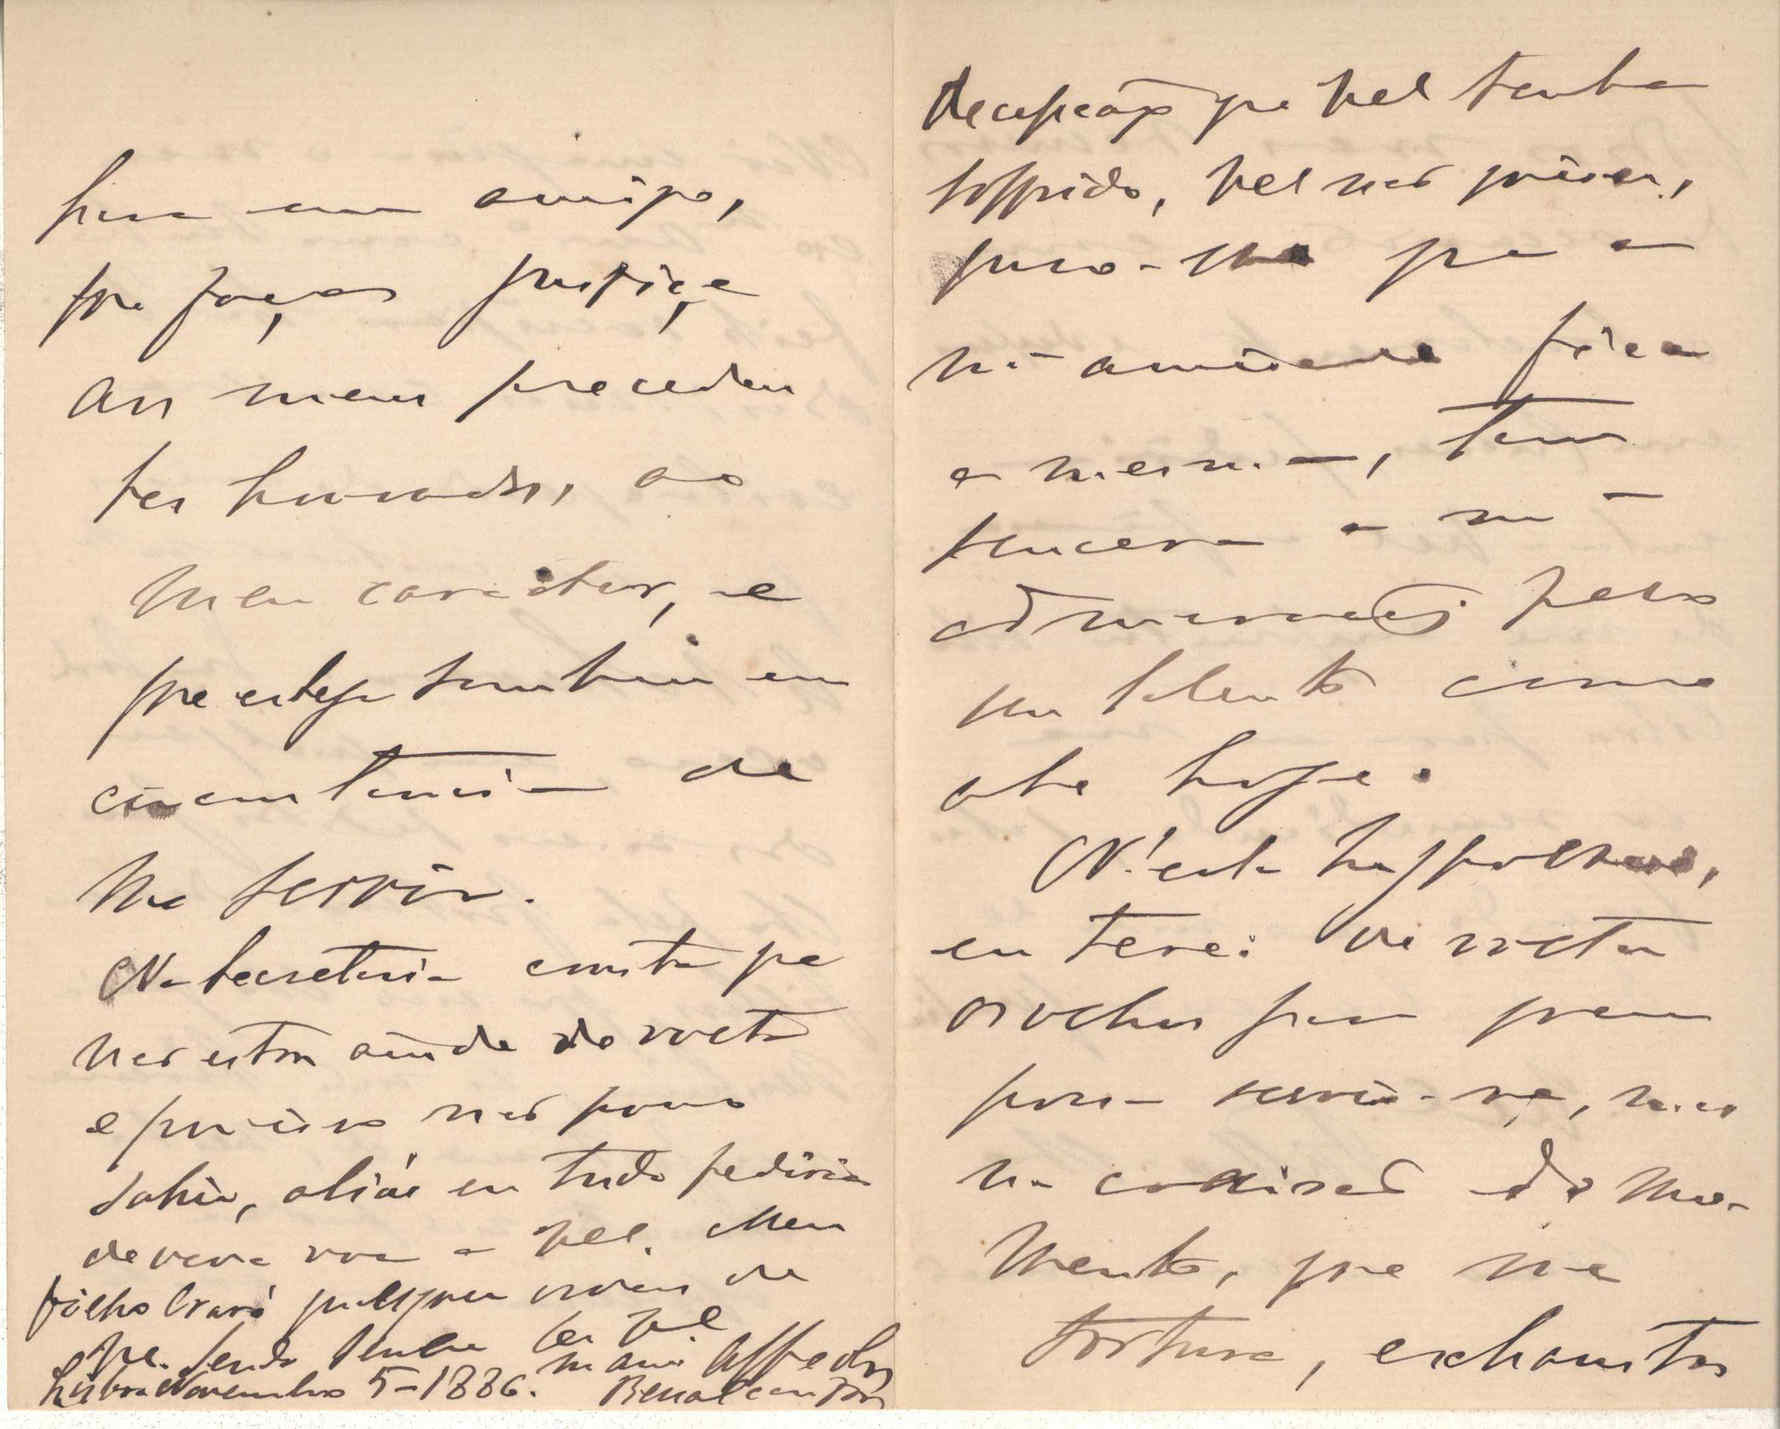 para um amigo,
que faças justiça
aos meus preceden
tes honrados, ao
meu caracter, e
que esteja tambem em
circumstancia de
me servir.
Na Secretaria consta que
não estou ainda de volta
e por isso não posso
sahir, aliás eu tudo pediria
de viva voz a V.Ex.ª Meu
filho trará qualquer ordem de
que tenha
Lisboa Novembro 5-1886. mais Aff
Benalcanfôr
decepção que V.Ex.ª tenha
soffrido, V.Ex.ª não quizer,
juro-lhe que a
m.ª amizade fica
a mesma, tem
sincera a m.ª
admiração pelo
seu talento como
até hoje.
N'esta hypothese,
eu terei de voltar
os olhos para quem
possa servir-me, mas
na do mo-
mento, que me
tortura, exhaustos